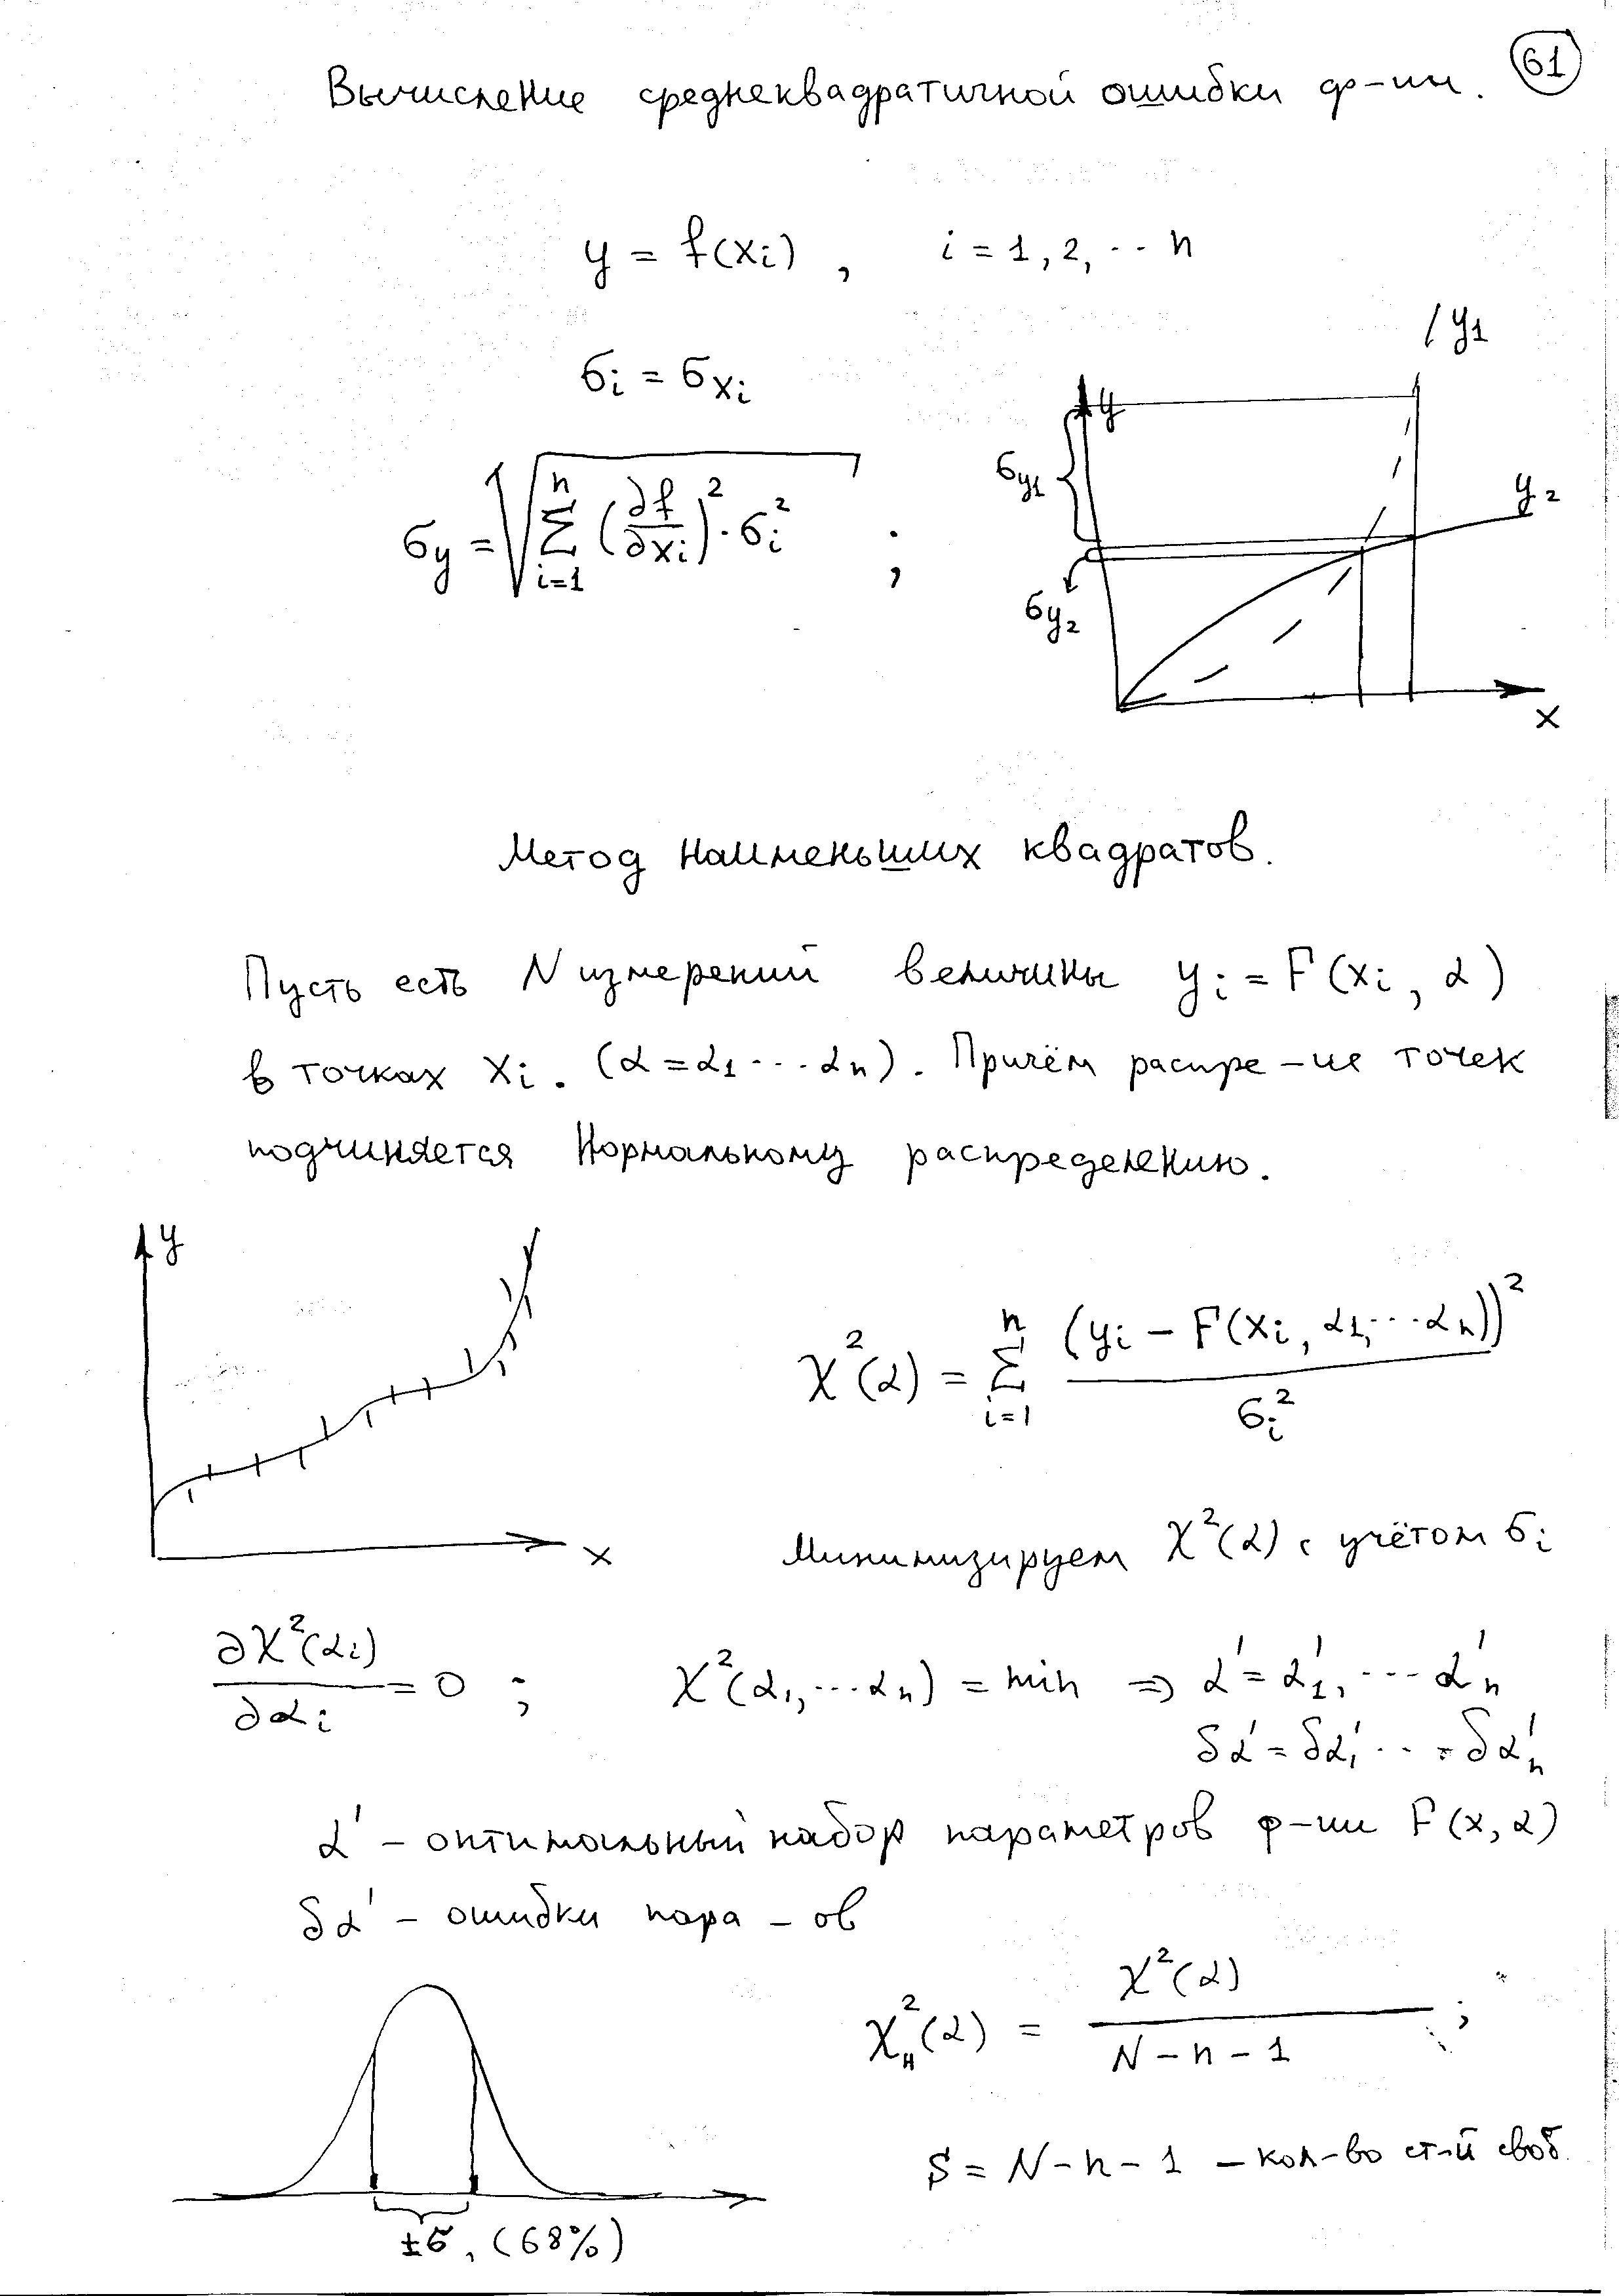 61
Вычисление среднеквадратичной ошибки ф-ии.
y = f(xi) , i = 1, 2, ... n
σi = σxi
σy = √ Σ i=1 n (∂f/∂xi)² · σi² ;
y
y1
y2
σy1
σy2
x
Метод наименьших квадратов.
Пусть есть N измерений величины yi = F(xi, α)
в точках xi. (α = α1 ... αn). Причём распре-ие точек
подчиняется Нормальному распределению.
y
x
χ²(α) = Σ i=1 n (yi − F(xi, α1, ... αn))² / σi²
Минимизируем χ²(α) с учётом σi
∂χ²(αi)/∂αi = 0 ; χ²(α1, ... αn) = min ⇒ α' = α'1, ... α'n
δα' = δα'1 ... δα'n
α' – оптимальный набор параметров ф-ии F(x, α)
δα' – ошибки пара – ов
χ²н(α) = χ²(α) / N − n − 1 ;
S = N − n − 1 – кол-во ст-й своб.
±σ, (68%)